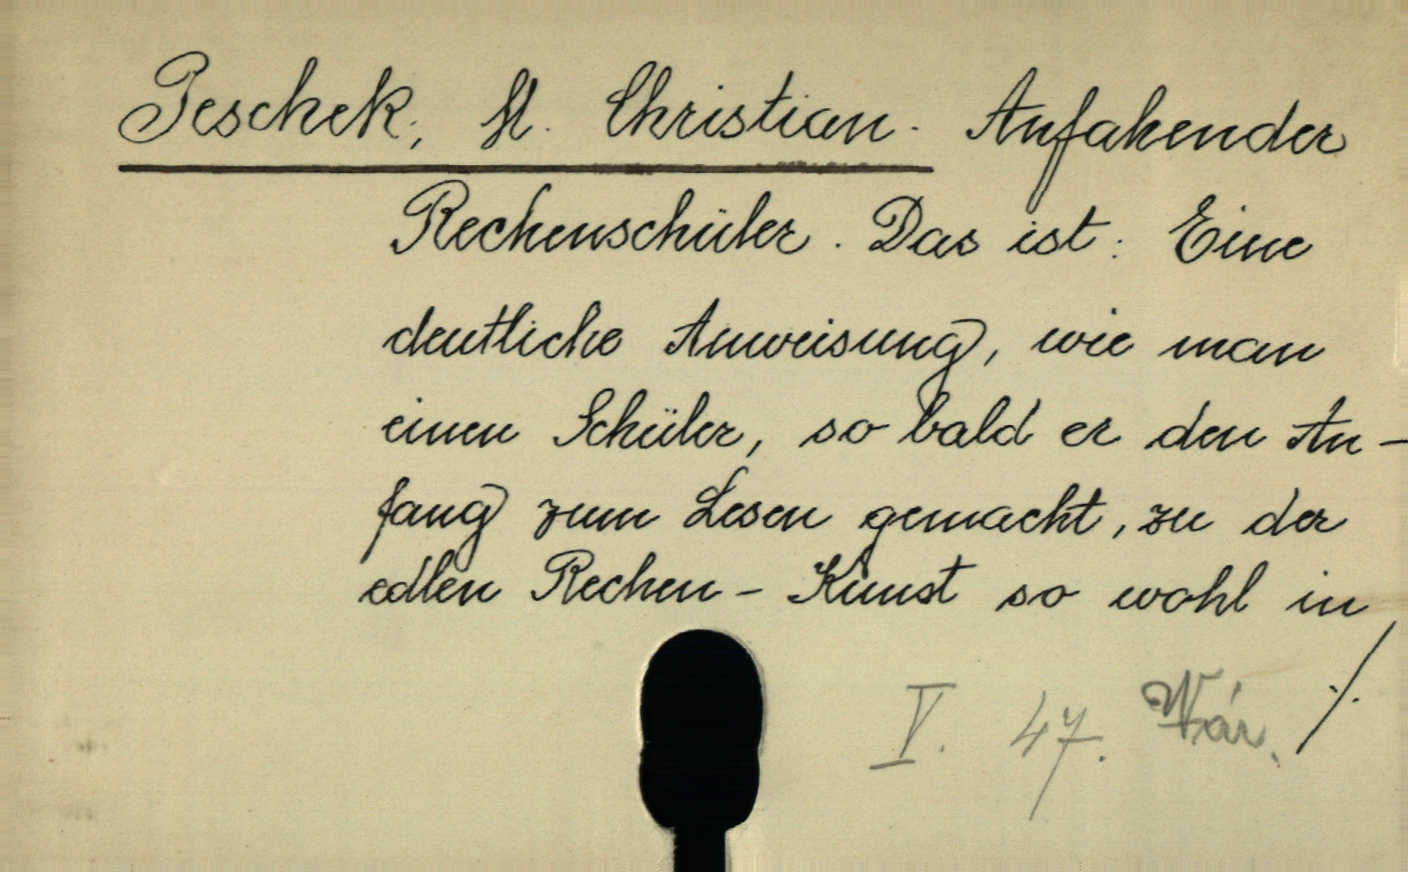 Peschek, M. Christian. Anfahender
Rechenschüler. Das ist: Eine
deutliche Anweisung, wie man
einen Schüler, so bald er den An-
fang zum Lesen gemacht, zu der
edlen Rechen-Kunst so wohl in
V. 47. Vár. ./.